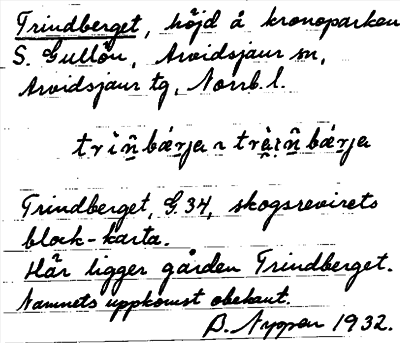 Trindberget, höjd å kronoparken
S. Gullön, Arvidsjaur sn,
Arvidsjaur tg, Norrb. l.
Trindberget, G.34, skogsrevirets
block-karta.
Här ligger gården Trindberget.
Namnets uppkomst obekant.
B. Nyman 1932.